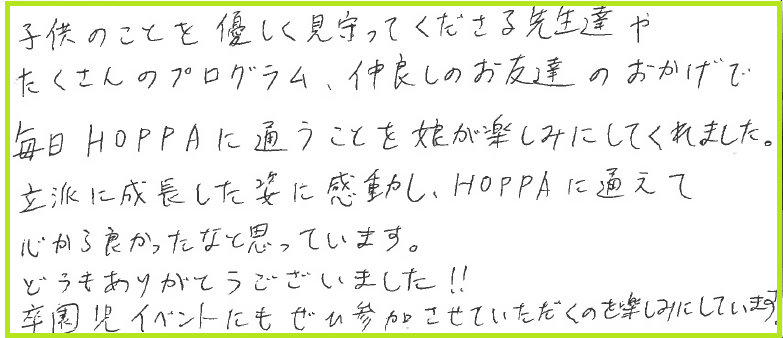 子供のことを優しく見守ってくださる先生達や
たくさんのプログラム、仲良しのお友達のおかげで
毎日HOPPAに通うことを娘が楽しみにしてくれました。
立派に成長した姿に感動し、HOPPAに通えて
心から良かったなと思っています。
どうもありがとうございました!!
卒園児イベントにもぜひ参加させていただくのを楽しみにしています。